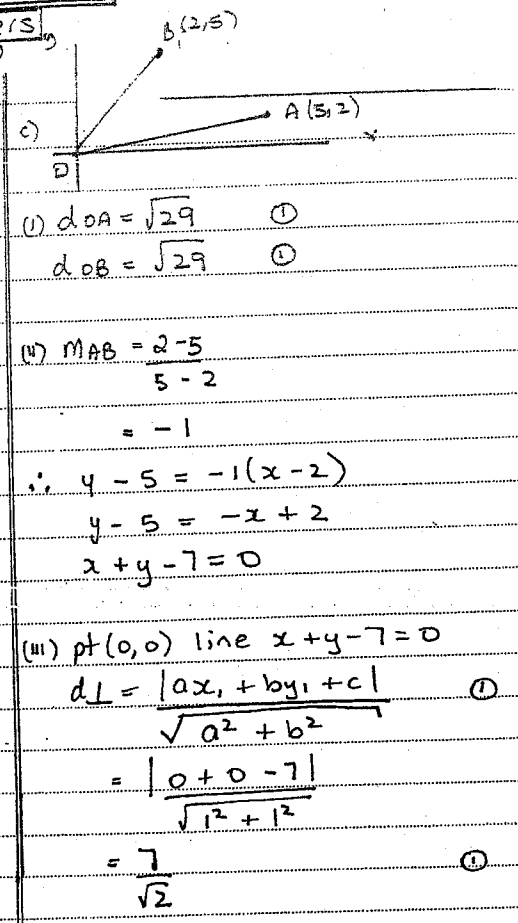 ers
B (2,5)
A (5,2)
c)
x
O
(i) d OA = √29 ①
d OB = √29 ①
(ii) M AB = 2-5 / 5-2
= -1
∴ y - 5 = -1(x-2)
y - 5 = -x + 2
x + y - 7 = 0
(iii) pt (0,0) line x+y-7=0
d⊥ = |ax₁ + by₁ + c| / √a² + b² ①
= |0 + 0 - 7| / √1² + 1²
= 7 / √2 ①